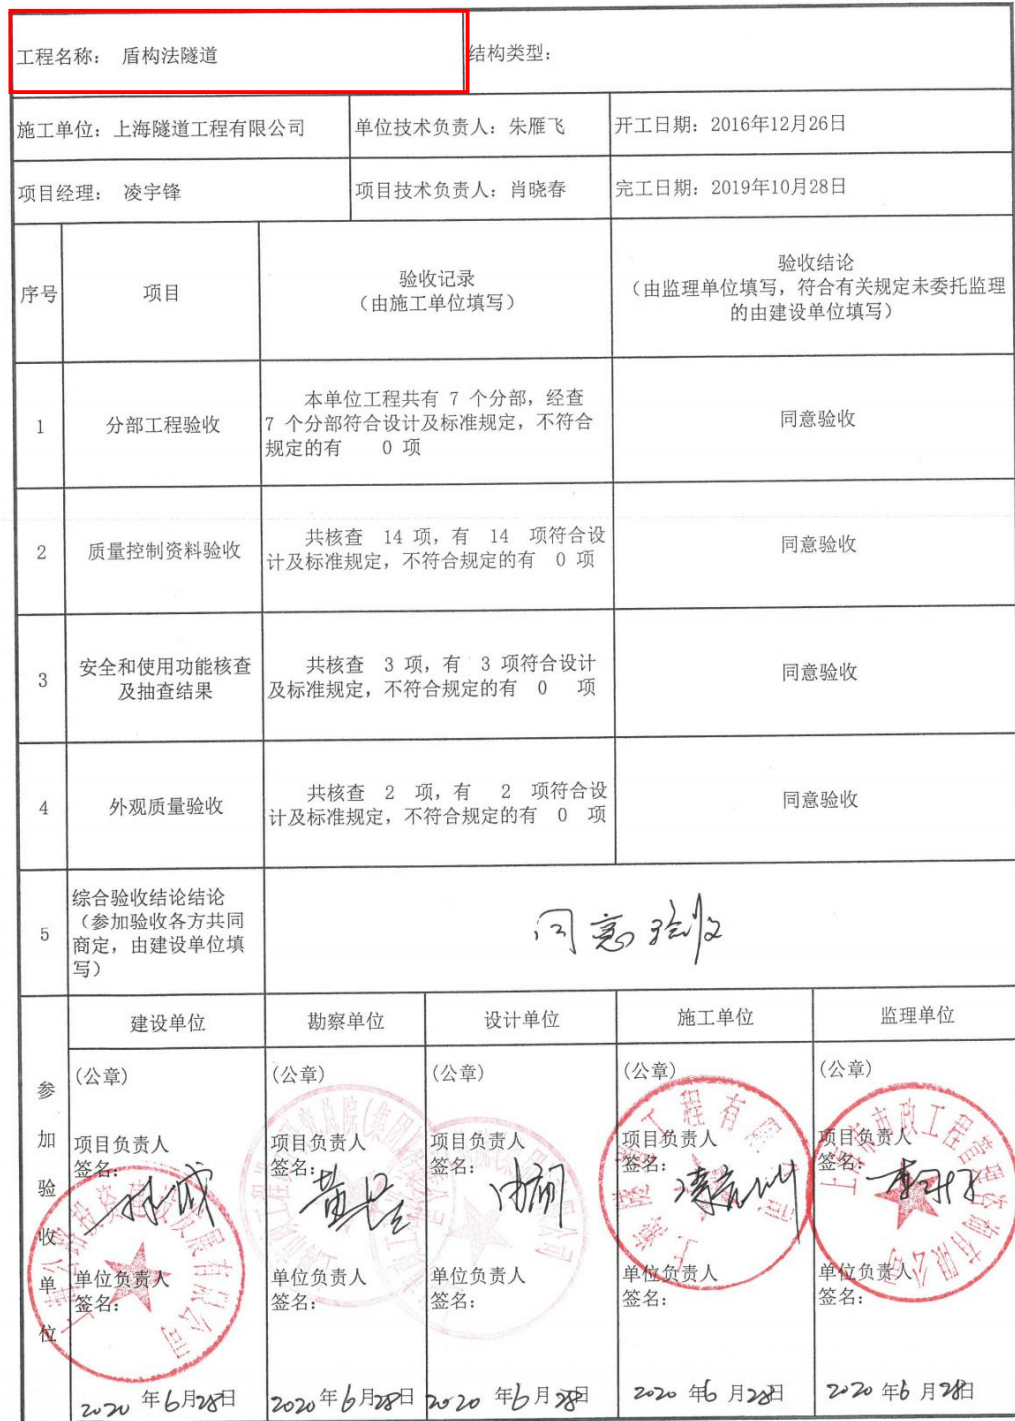 工程名称： 盾构法隧道
结构类型：
施工单位：上海隧道工程有限公司
单位技术负责人：朱雁飞
开工日期：2016年12月26日
项目经理： 凌宇锋
项目技术负责人：肖晓春
完工日期：2019年10月28日
序号
项目
验收记录
（由施工单位填写）
验收结论
（由监理单位填写，符合有关规定未委托监理
的由建设单位填写）
1
分部工程验收
本单位工程共有 7 个分部，经查
7 个分部符合设计及标准规定，不符合
规定的有 0 项
同意验收
2
质量控制资料验收
共核查 14 项，有 14 项符合设
计及标准规定，不符合规定的有 0 项
同意验收
3
安全和使用功能核查
及抽查结果
共核查 3 项，有 3 项符合设计
及标准规定，不符合规定的有 0 项
同意验收
4
外观质量验收
共核查 2 项，有 2 项符合设
计及标准规定，不符合规定的有 0 项
同意验收
5
综合验收结论结论
（参加验收各方共同
商定，由建设单位填
写）
同意验收
参加验收单位
建设单位
勘察单位
设计单位
施工单位
监理单位
(公章)
(公章)
(公章)
(公章)
(公章)
项目负责人
签名：
项目负责人
签名：
项目负责人
签名：
项目负责人
签名：
项目负责人
签名：
单位负责人
签名：
单位负责人
签名：
单位负责人
签名：
单位负责人
签名：
单位负责人
签名：
2020 年6月28日
2020 年6月28日
2020 年6月28日
2020 年6月28日
2020 年6月28日